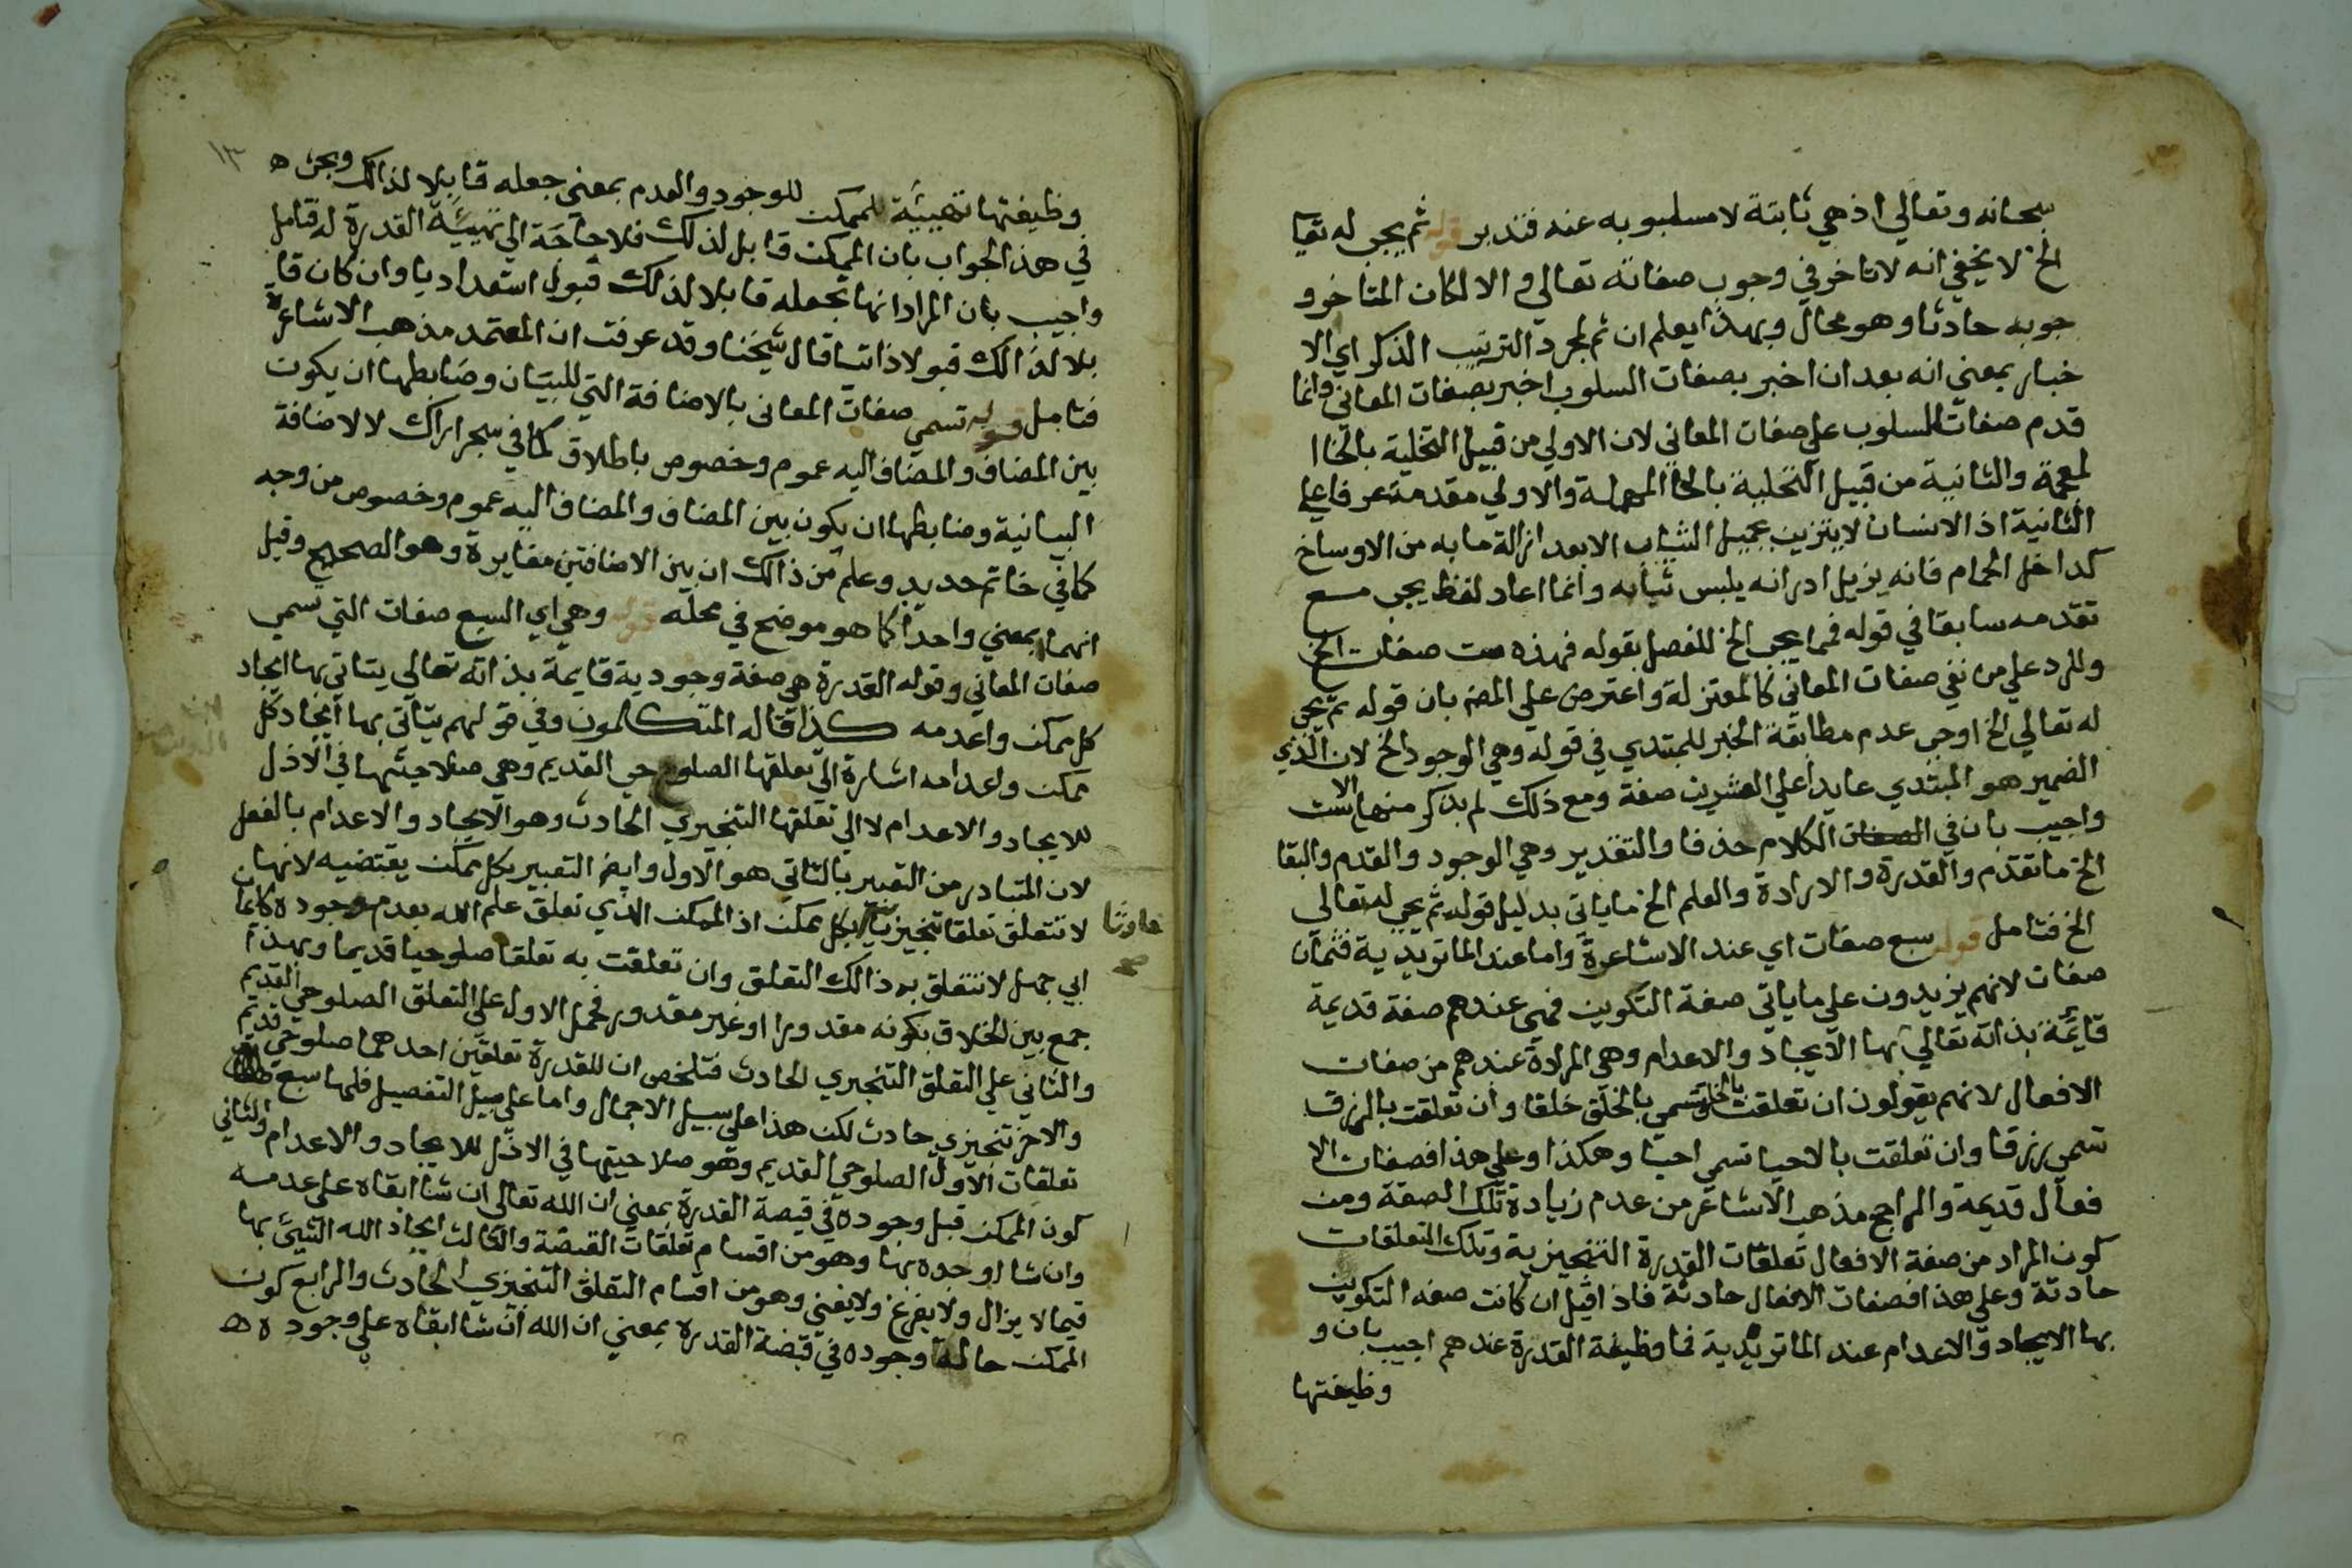 سبحانه وتعالي اذ هي ثابتة لا مسلبوبه عنه فتدبر قوله ثم يجب له تعا
الخ لا يخفي انه لا تاخر في وجوب صفاته تعالي والا لكان المتأخر و
جوبه حادثا وهو محال وبهذا يعلم ان ثم لمجرد الترتيب الذكر اي الا
خبار بمعني انه بعد ان اخبر بصفات السلوب اخبر بصفات المعاني وانما
قدم صفات السلوب علي صفات المعاني لان الاولي من قبيل التخلية بالخا ا
لمعجمة والثانية من قبيل التحلية بالحا المهملة والاولي مقدمة عرفا علي
الثانية اذ الانسان لا يتزين بجميل الثياب الا بعد ازالة ما به من الاوساخ
كداخل الحمام فانه يزيل ادرانه يلبس ثيابه وانما اعاد لفظ يجب مع
تقدمه سابقا في قوله فمما يجب الخ للفصل بقوله فهذه ست صفات الخ
وللرد علي من نفي صفات المعاني كالمعتزلة واعترض علي المص بان قوله ثم يجب
له تعالي الخ اوجب عدم مطابقة الخبر للمبتدي في قوله وهي الوجود الخ لان الذي
الضمير هو المبتدي عايدا علي العشرين صفة ومع ذلك لم يذكر منها الا ست
واجيب بان في الكلام حذفا والتقدير وهي الوجود والقدم والبقا
الخ ما تقدم والقدرة والارادة والعلم الخ ما ياتي بدليل قوله ثم يجب له تعالي
الخ فتامل قوله سبع صفات اي عند الاشاعرة واما عند الماتريدية فثمان
صفات لانهم يزيدون علي ما ياتي صفة التكوين فهي عندهم صفة قديمة
قائمة بذاته تعالي بها الايجاد والاعدام وهي المرادة عندهم من صفات
الافعال لانهم يقولون ان تعلقت بالخلق تسمي بالخلق خلقا وان تعلقت بالرزق
تسمي رزقا وان تعلقت بالاحيا تسمي احيا وهكذا وعلي هذا فصفات الا
فعال قديمة والراجح مذهب الاشاعر من عدم زيادة تلك الصفة ومن
كون المراد من صفة الافعال تعلقات القدرة التنجيزية وتلك التعلقات
حادثة وعلي هذا فصفات الافعال حادثة فاذا قيل ان كانت صفه التكوين
بها الايجاد والاعدام عند الماتريدية فما وظيفة القدرة عندهم اجيب بان و
وظيفتها
١٣
وظيفتها تهيئة للممكن للوجود والعدم بمعني جعله قابلا لذالك وبحث ه
في هذ الجواب بان الممكن قابل لذلك فلا حاجة الي تهيئة القدرة له فتامل
واجيب بان المراد انها تجعله قابلا لذلك قبول استعداديا وان كان قا
بلا لذالك قبولا ذاتيا قال شيخنا وقد عرفت ان المعتمد مذهب الاشاعرة
فتامل قوله تسمي صفات المعاني بالاضافة التي للبيان وضابطها ان يكون
بين المضاف والمضاف اليه عموم وخصوص باطلاق كما في شجر اراك لا الاضافة
البيانية وضابطها ان يكون بين المضاف والمضاف اليه عموم وخصوص من وجه
كما في خاتم حديد وعلم من ذالك ان بين الاضافتين مغايرة وهو الصحيح وقيل
انهما بمعني واحد كما هو موضح في محله قوله وهي اي السبع صفات التي تسمي
صفات المعاني وقوله القدرة هي صفة وجودية قايمة بذاته تعالي يتاتي بها ايجاد
كل ممكن واعدمه كذا قاله المتكلمون وفي قولهم يتاتي بها ايجاد كل
ممكن واعدامه اشارة الي تعلقها الصلوحي القديم وهي صلاحيتها في الازل
للايجاد والاعدام لا الي تعلقها التنجيزي الحادث وهو الايجاد والاعدام بالفعل
لان المتبادر من التعبير بالتاتي هو الاول وايضا التعبير بكل ممكن يقتضيه لانها
لا تتعلق تعلقا تنجيزيا بكل ممكن اذ الممكن الذي تعلق علم الله بعدم وجوده كايمان
حادثا
صح
ابي جهل لا تتعلق به ذالك التعلق وان تعلقت به تعلقا صلوحيا قديما وبهذا
جمع بين الخلاق بكونه مقدورا او غير مقدور فحمل الاول علي التعلق الصلوحي القديم
والثاني علي التعلق التنجيزي الحادث فتلخص ان للقدرة تعلقين احدهما صلوحي قديم
والاخر تنجيزي حادث لكن هذا علي سبيل الاجمال واما علي سبيل التفصيل فلها سبع
تعلقات الاول الصلوحي القديم وهو صلاحيتها في الازل للايجاد والاعدام والثاني
كون الممكن قبل وجوده في قبضة القدرة بمعني ان الله تعالي ان شا ابقاه علي عدمه
وان شا اوجده بها وهو من اقسام تعلقات القبضة والثالث ايجاد الله الشيئ بها
فيما لا يزال ولا يفرغ ولا يفني وهو من اقسام التعلق التنجيزي الحادث والرابع كون
الممكن حالة وجوده في قبضة القدرة بمعني ان الله ان شا ابقاه علي وجوده ه